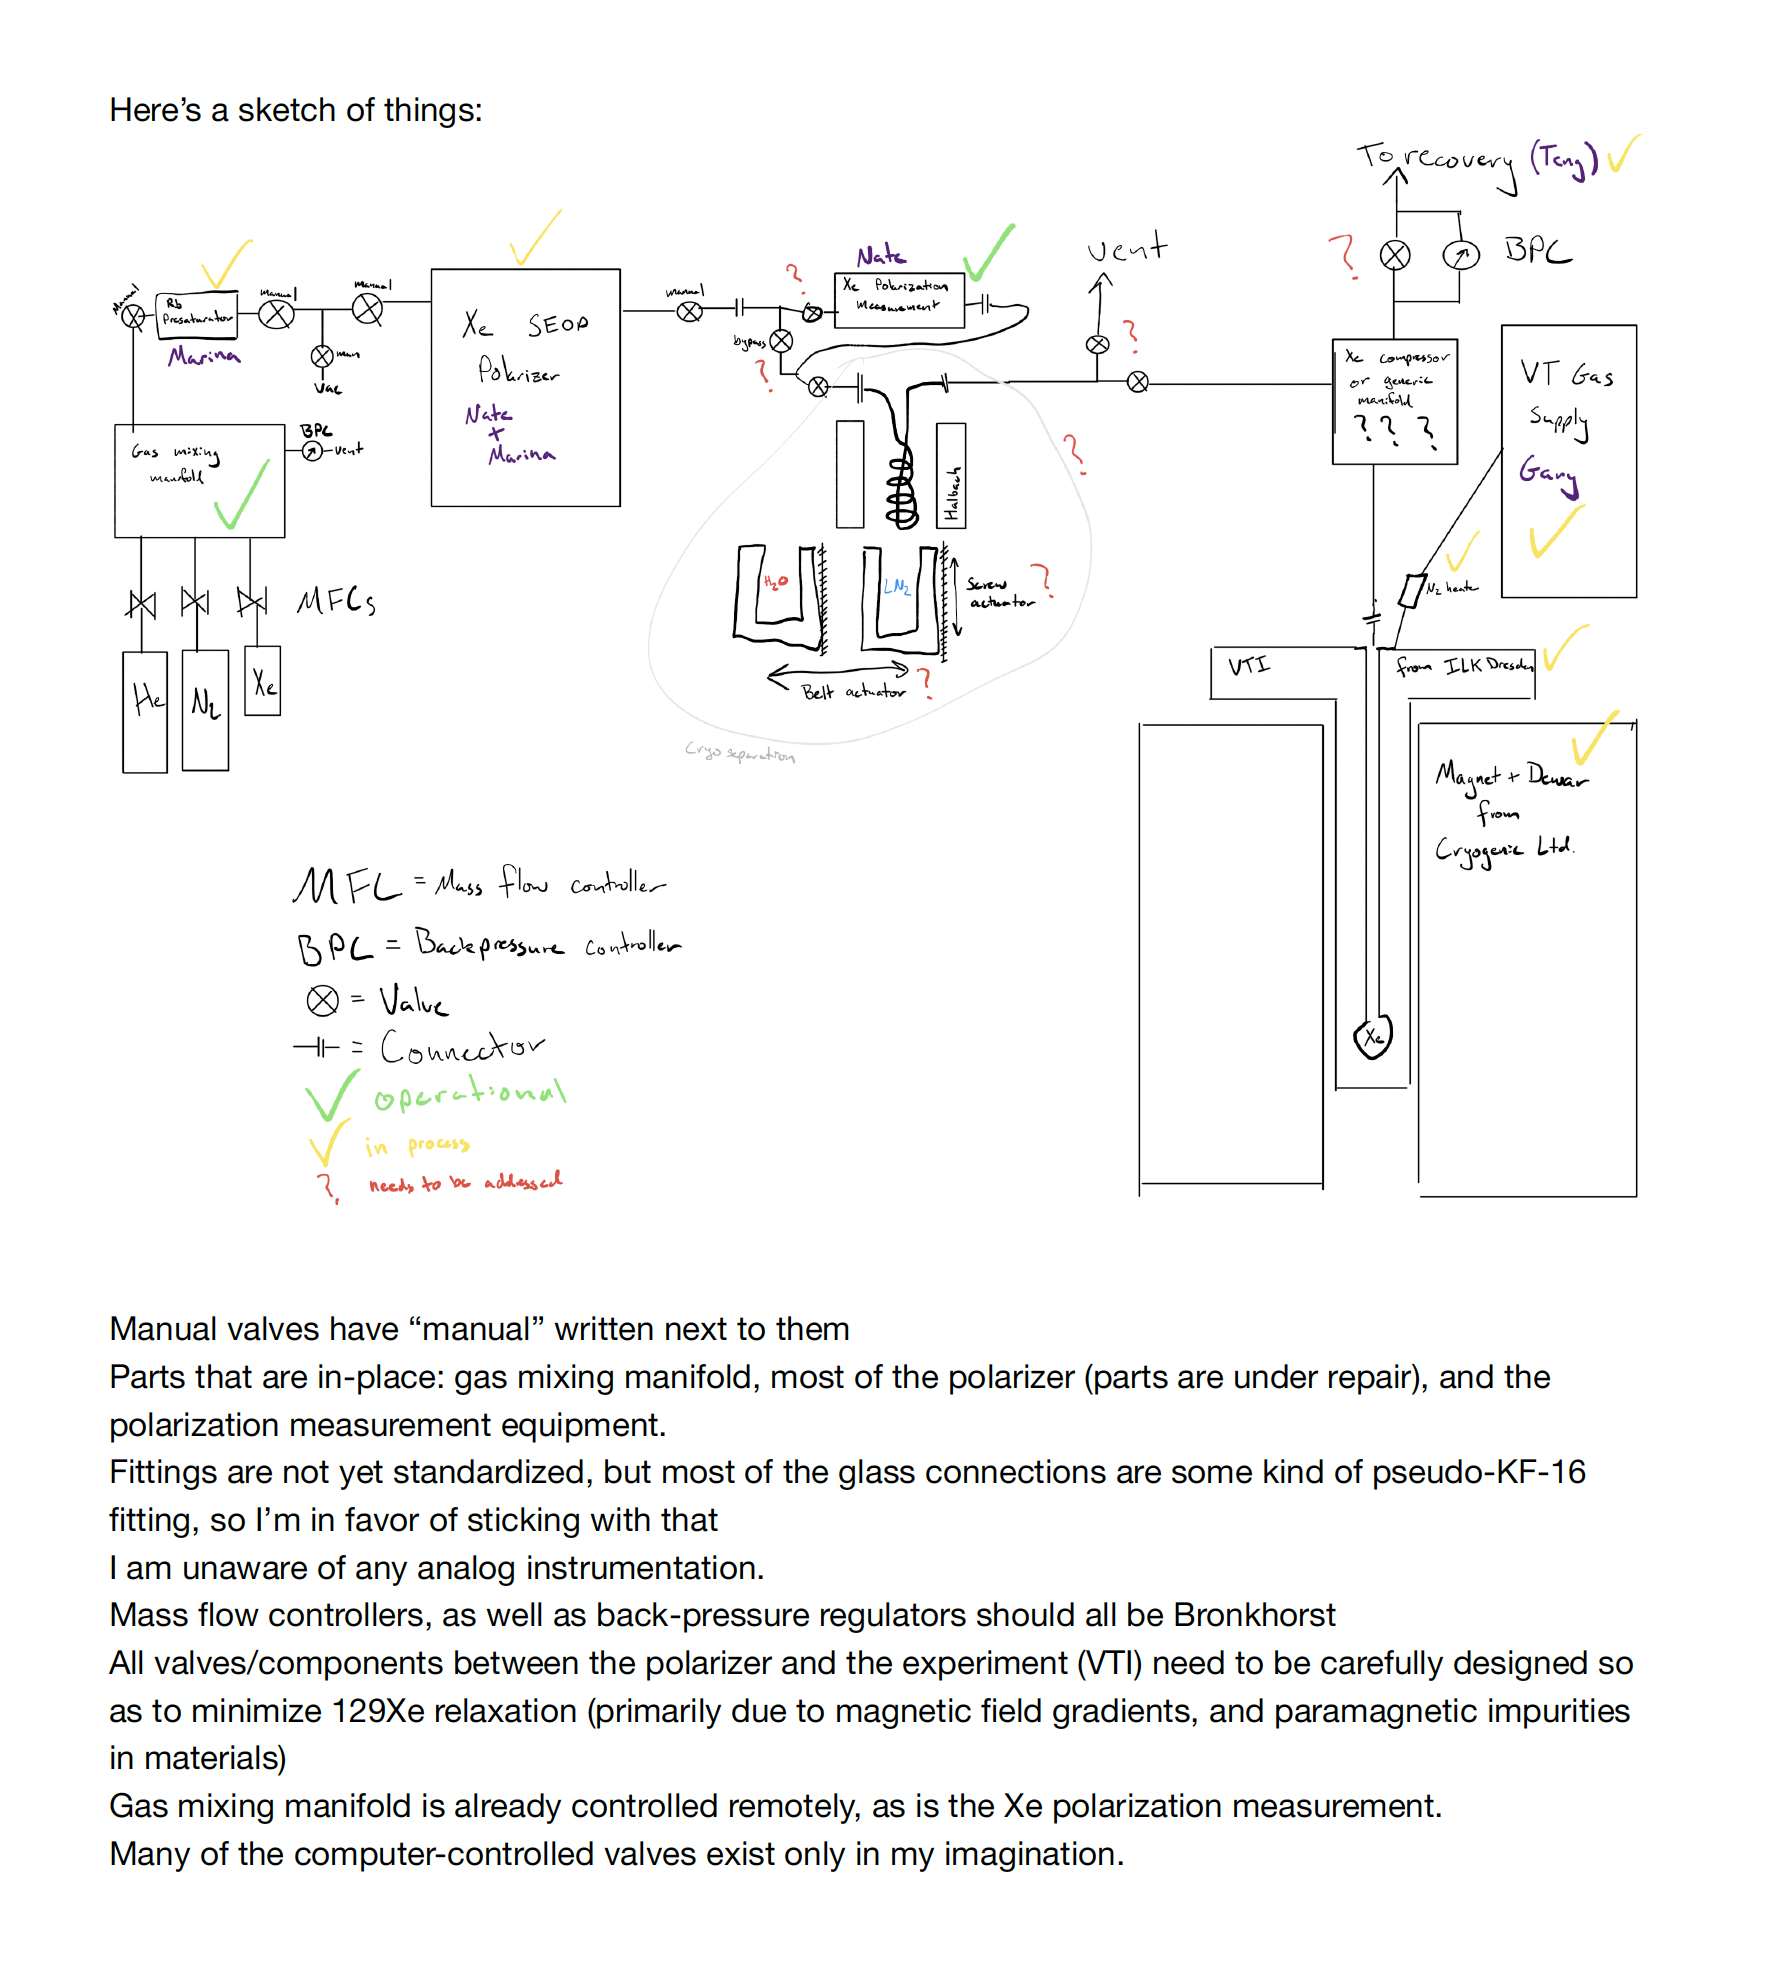 Here’s a sketch of things:
To recovery (Teng)
BPC
vent
Nate
Xe Polarization
Measurement
manual
bypass
Manual
Rb
Presaturator
Marina
manual
manual
man
Vac
Xe SEOP
Polarizer
Nate
+
Marina
Gas mixing
manifold
BPC
vent
MFCs
He
N2
Xe
Halbach
H2O
LN2
Screw
actuator
?
Belt actuator ?
Cryo separation
Xe compressor
or generic
manifold
? ? ?
VT Gas
Supply
Gary
N2 heater
VTI
from ILK Dresden
Magnet + Dewar
from
Cryogenic Ltd.
Xe
MFC = Mass flow controller
BPC = Backpressure controller
= Valve
= Connector
operational
in process
? needs to be addressed
Manual valves have “manual” written next to them
Parts that are in-place: gas mixing manifold, most of the polarizer (parts are under repair), and the
polarization measurement equipment.
Fittings are not yet standardized, but most of the glass connections are some kind of pseudo-KF-16
fitting, so I’m in favor of sticking with that
I am unaware of any analog instrumentation.
Mass flow controllers, as well as back-pressure regulators should all be Bronkhorst
All valves/components between the polarizer and the experiment (VTI) need to be carefully designed so
as to minimize 129Xe relaxation (primarily due to magnetic field gradients, and paramagnetic impurities
in materials)
Gas mixing manifold is already controlled remotely, as is the Xe polarization measurement.
Many of the computer-controlled valves exist only in my imagination.